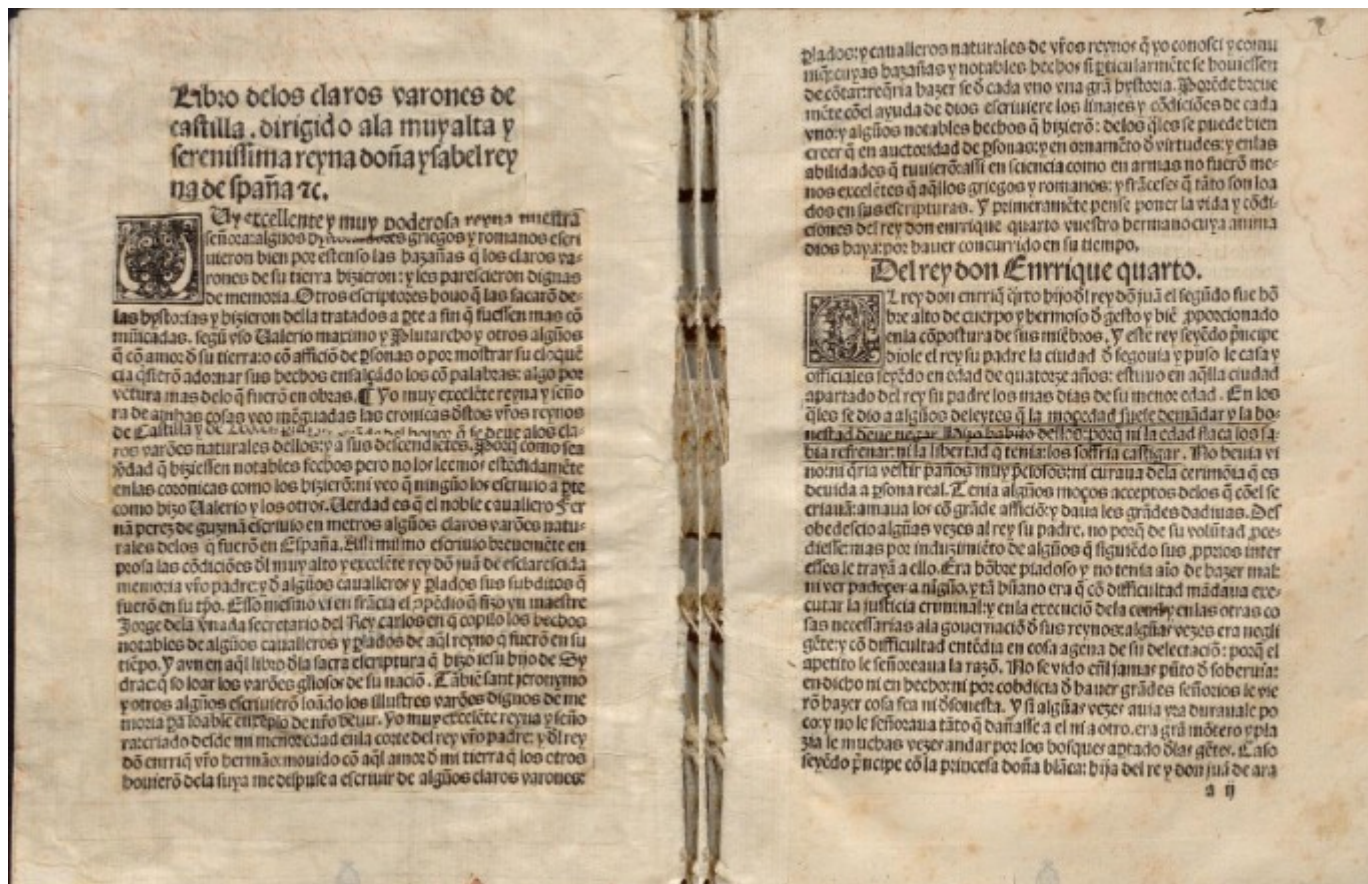 Libro delos claros varones de
castilla. dirigido ala muy alta y
serenissima reyna doña ysabel rey
na de spaña ⁊c.
Uy excellente y muy poderosa reyna nuestra
señora: algũos griegos y romanos escri
uieron bien por estenso las hazañas q̃ los claros va-
rones de su tierra hizieron: y les parescieron dignas
de memoria. Otros escriptores houo q̃ las sacarõ de-
las hystorias y hizieron della tratados a pte a fin q̃ fuessen mas cõ
mũicadas. segũ yso Ualerio maximo y Plutarcho y otros algũos
q̃ cõ amor õ su tierra: o cõ afficiõ de psonas o por mostrar su eloquẽ
cia q̃sierõ adornar sus hechos ensalçãdo los cõ palabras: algo por
vẽtura mas delo q̃ fuerõ en obras. ¶ Yo muy excelẽte reyna y seño
ra de ambas cosas veo mẽguadas las cronicas dstos vr̃os reynos
de Castilla y de del honor q̃ se deue alos cla-
ros varões naturales dellos: y a sus descendiẽtes. Porq̃ como sea
ṽdad q̃ hiziessen notables fechos pero no los leemos estẽdidamẽte
enlas coronicas como los hizierõ: ni veo q̃ ningũo los escriuio a pte
como hizo Ualerio y los otros. Uerdad es q̃ el noble cauallero Fer
nã perez de guzmã escriuio en metros algũos claros varões natu-
rales delos q̃ fuerõ en España. Assi mismo escriuio breuemẽte en
prosa las cõdiciões dl muy alto y excelẽte rey dõ juã de esclarescida
memoria vr̃o padre: y õ algũos caualleros y plados sus subditos q̃
fuerõ en su tp̃o. Esso mesmo vi en frãcia el cõpẽdio q̃ fizo vn maestre
Jorge dela vnada secretario del Rey carlos en q̃ copilo los hechos
notables de algũos caualleros y plados de aq̃l reyno q̃ fuerõ en su
tiẽpo. Y avn en aq̃l libro dla sacra escriptura q̃ hizo iesu hijo de Sy
drac: q̃so loar los varões gl̃iosos de su naciõ. Tãbiẽ sant jeronymo
y otros algũos escriuierõ loãdo los illustres varões dignos de me
moria pa loable enxẽplo de nr̃o beuir. Yo muy excelẽte reyna y seño
ra: criado desde mi menor edad enla corte del rey vr̃o padre: y dl rey
dõ enriq̃ vr̃o hermão: mouido cõ aq̃l amor õ mi tierra q̃ los otros
houierõ dela suya me dispuse a escriuir de algũos claros varones:
plados: y caualleros naturales de vr̃os reynos q̃ yo conosci y comu
niq̃: cuyas hazañas y notables hechos si pticularmẽte se houiessen
de cõtar: req̃ria hazer se õ cada vno vna grã hystoria. Porẽde breue
mẽte cõel ayuda de dios escriuiere los linajes y cõdiciões de cada
vno: y algũos notables hechos q̃ hizierõ: delos q̃les se puede bien
creer q̃ en auctoridad de psonas: y en ornamẽto õ virtudes: y enlas
abilidades q̃ tuuierõ: assi en sciencia como en armas no fuerõ me-
nos excelẽtes q̃ aq̃llos griegos y romanos: y frãceses q̃ tãto son loa
dos en sus escripturas. Y primeramẽte pense poner la vida y cõdi-
ciones del rey don enrrique quarto vuestro hermano cuya anima
dios haya: por hauer concurrido en su tiempo.
Del rey don Enrrique quarto.
L rey don enrriq̃ q̃rto hijo dl rey dõ juã el segũdo fue hõ
bre alto de cuerpo y hermoso õ gesto y biẽ pporcionado
enla cõpostura de sus miẽbros. Y este rey seyẽdo p̃ncipe
diole el rey su padre la ciudad õ segouia y puso le casa y
officiales seyẽdo en edad de quatorze años: estuuo en aq̃lla ciudad
apartado del rey su padre los mas dias de su menor edad. En los
q̃les se dio a algũos deleytes q̃ la mocedad suele demãdar y la ho-
nestad deue negar. Hizo habito dellos: porq̃ ni la edad flaca los sa-
bia refrenar: ni la libertad q̃ tenia: los sofria castigar. No beuia vi
no: ni q̃ria vestir paños muy p̃ciosos: ni curaua dela cerimõia q̃ es
deuida a psona real. Tenia algũos moços acceptos delos q̃ cõel se
criauã: amaua los cõ grãde afficiõ: y daua les grãdes dadiuas. Des
obedescio algũas vezes al rey su padre. no porq̃ de su volũtad pce-
diesse: mas por induzimiẽto de algũos q̃ siguiẽdo sus pprios inter
esses le trayã a ello. Era hõbre piadoso y no tenia aĩo de hazer mal:
ni ver padeçer a nĩgũo. y tã hũano era q̃ cõ difficultad mãdaua exe-
cutar la justicia criminal: y enla execuciõ dela ceuil: y en las otras co
sas necessarias ala gouernaciõ õ sus reynos: algũas vezes era negli
gẽte: y cõ difficultad entẽdia en cosa agena de su delectaciõ: porq̃ el
apetito le señoreaua la razõ. No se vido enl̃ jamas pũto õ soberuia:
en dicho ni en hecho: ni por cobdicia õ hauer grãdes señorios le vie
rõ hazer cosa fea ni dsonesta. Y si algũas vezes auia yra duraua le po
co: y no le señoraua tãto q̃ dañasse a el ni a otro. era grã mõtero y pla
zia le muchas vezes andar por los bosques aptado dlas gẽtes. Caso
seyẽdo p̃ncipe cõ la princesa doña blãca: hija del rey don juã de ara
a ij